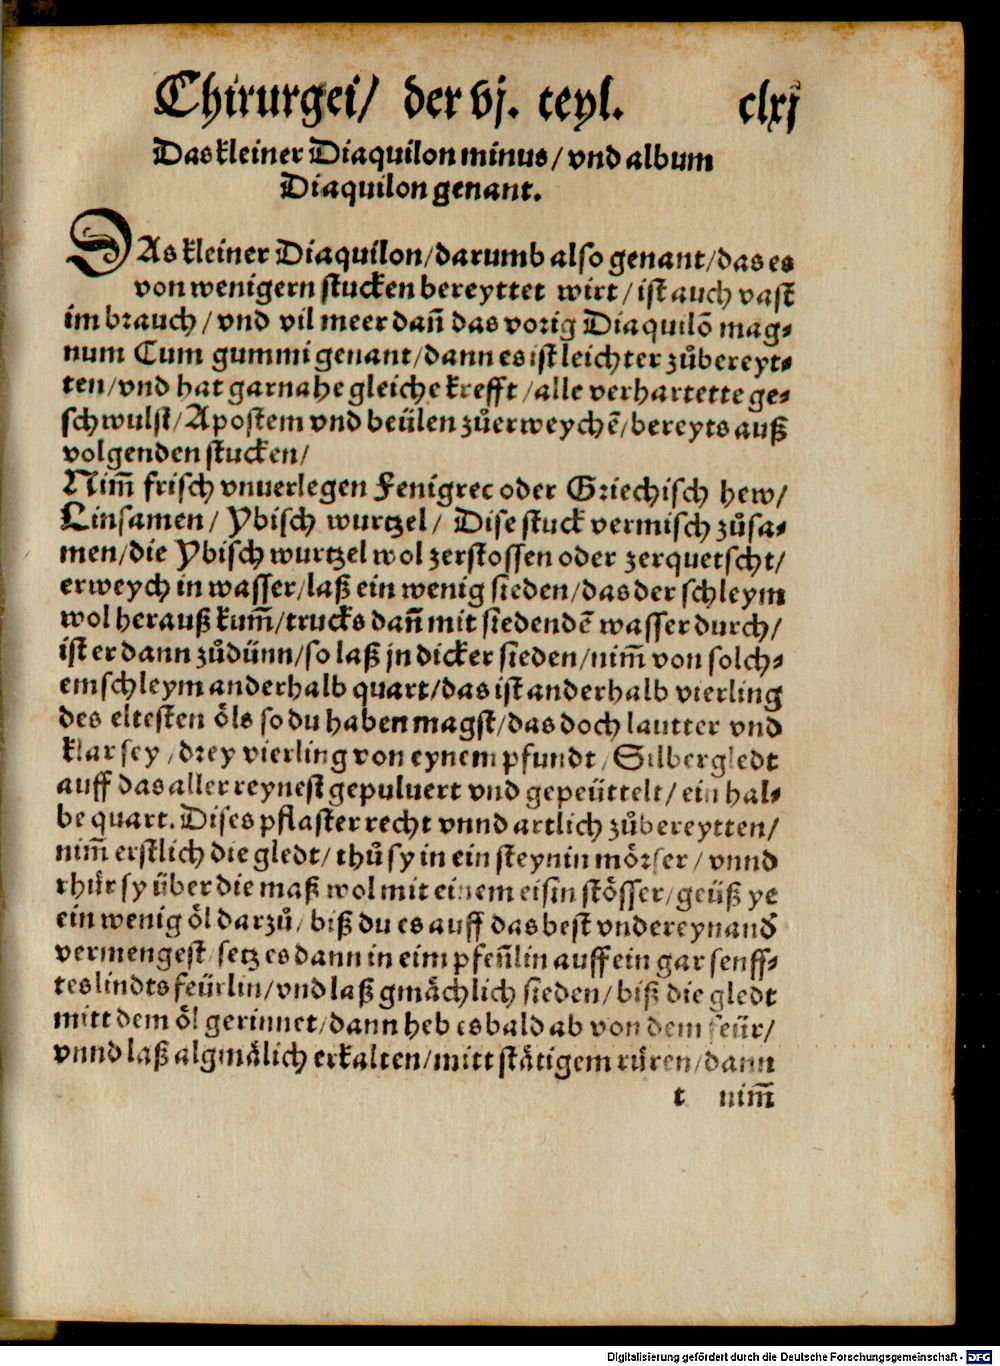 Chirurgei/ der vj. teyl. clxj
Das kleiner Diaquilon minus/ vnd album
Diaquilon genant.
DAs kleiner Diaquilon/darumb also genant/das es
von wenigern stucken bereyttet wirt/ist auch vast
im brauch/vnd vil meer dañ das vorig Diaquilõ mag⸗
num Cum gummi genant/dann es ist leichter zůbereyt⸗
ten/vnd hat gar nahe gleiche krefft/alle verhartette ge⸗
schwulst/Apostem vnd beülen zůerweychẽ/bereyts auß
volgenden stucken/
Nim̃ frisch vnuerlegen Fenigrec oder Griechisch hew/
Linsamen/ Ybisch wurtzel/ Dise stuck vermisch zůsa⸗
men/die Ybisch wurtzel wol zerstossen oder zerquetscht/
erweych in wasser/laß ein wenig sieden/das der schleym
wol herauß kum̃/trucks dañ mit siedendẽ wasser durch/
ist er dann zůdünn/so laß jn dicker sieden/nim̃ von solch⸗
em schleym anderhalb quart/das ist anderhalb vierling
des eltesten öls so du haben magst/das doch lautter vnd
klar sey/drey vierling von eynem pfundt/Silbergledt
auff das aller reynest gepuluert vnd gepeüttelt/ein hal⸗
be quart. Dises pflaster recht vnnd artlich zůbereytten/
nim̃ erstlich die gledt/thů sy in ein steynin mörser/vnnd
rhür sy über die maß wol mit einem eisin stösser/geüß ye
ein wenig öl darzů/biß du es auff das best vndereynand̓
vermengest/setz es dann in eim pfeñlin auff ein gar senff⸗
tes lindts feürlin/vnd laß gmächlich sieden/biß die gledt
mitt dem öl gerinnet/dann heb es bald ab von dem feür/
vnnd laß algmälich erkalten/mitt stätigem rüren/dann
t nim̃
Digitalisierung gefördert durch die Deutsche Forschungsgemeinschaft - DFG